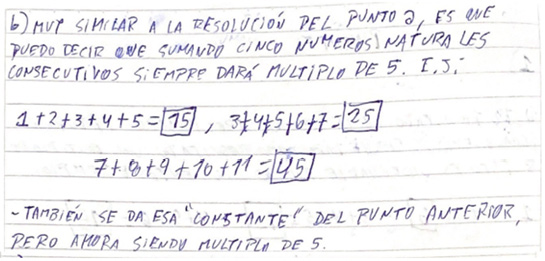 b) MUY SIMILAR A LA RESOLUCIÓN DEL PUNTO a, ES QUE
PUEDO DECIR QUE SUMANDO CINCO NUMEROS NATURALES
CONSECUTIVOS SIEMPRE DARÁ MULTIPLO DE 5.
1+2+3+4+5=15, 3+4+5+6+7=25
7+8+9+10+11=45
-TAMBIÉN SE DA ESA "CONSTANTE" DEL PUNTO ANTERIOR,
PERO AHORA SIENDO MULTIPLO DE 5.